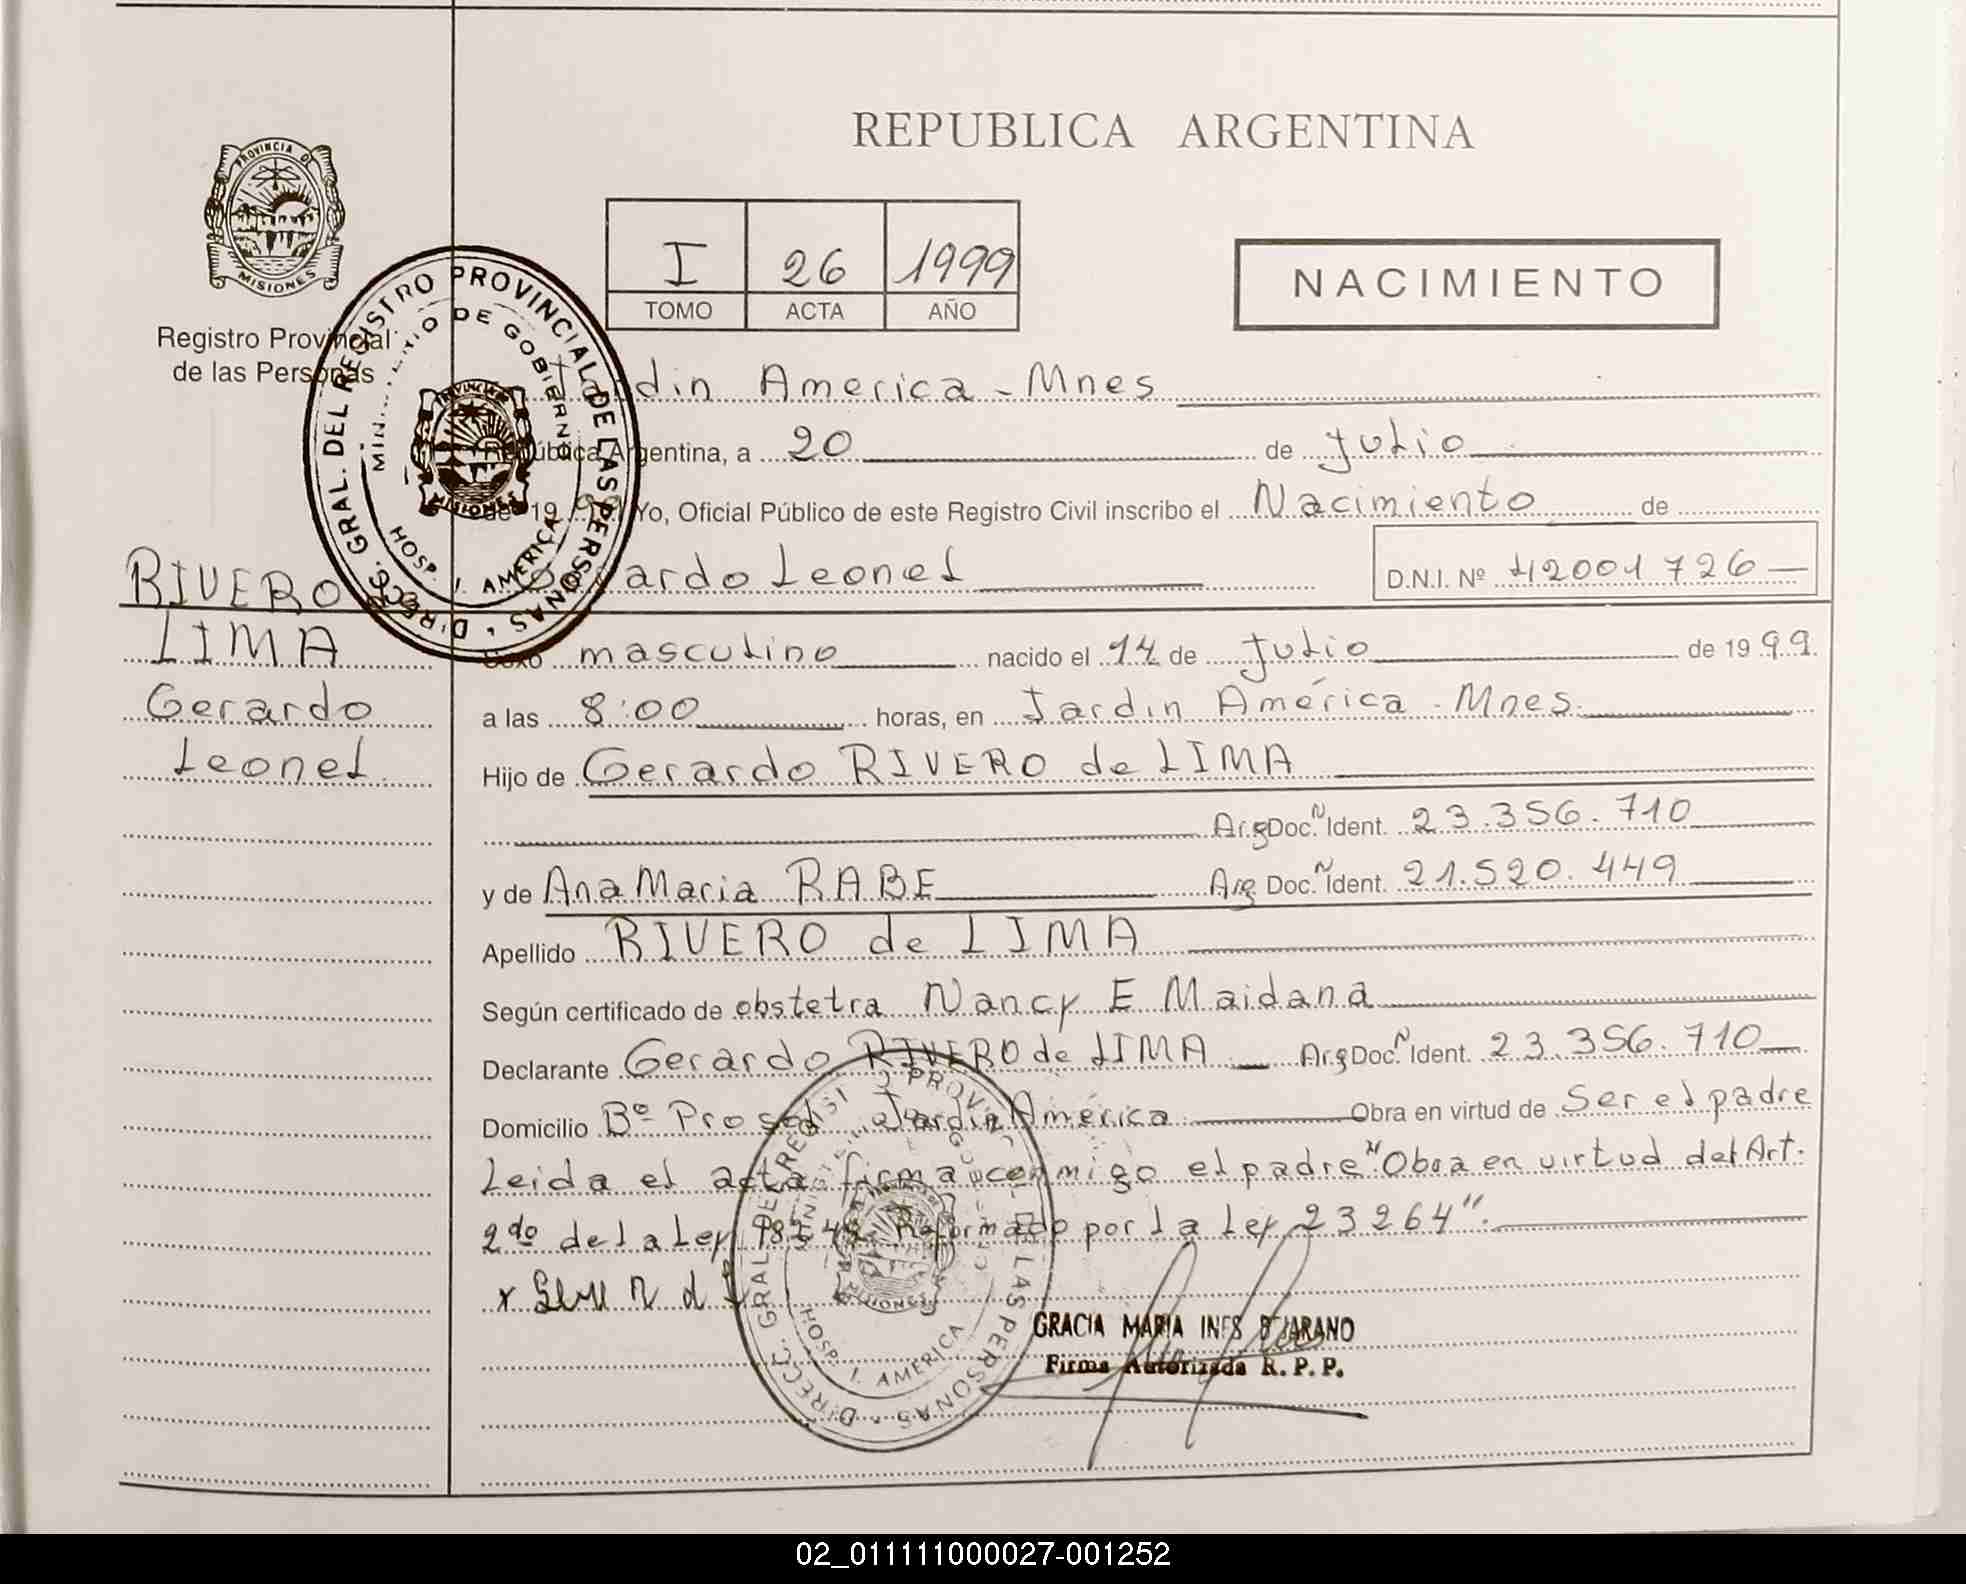 REPUBLICA ARGENTINA
PROVINCIA D
MISIONES
Registro Provincial
de las Personas
I 26 1999
TOMO ACTA AÑO
NACIMIENTO
DIRECC. GRAL. DEL REGISTRO PROVINCIAL DE LAS PERSONAS
MINISTERIO DE GOBIERNO
HOSP. J. AMERICA
MISIONES
Jardin America - Mnes
República Argentina, a 20 de Julio
de 1999 Yo, Oficial Público de este Registro Civil inscribo el Nacimiento de
Gerardo Leonel D.N.I. Nº 42001726
RIVERO
de LIMA
Gerardo
Leonel
Sexo masculino nacido el 14 de Julio de 1999.
a las 8:00 horas, en Jardin América - Mnes.
Hijo de Gerardo RIVERO de LIMA
Arg Doc. Ident. 23.356.710
y de Ana Maria RABE Arg Doc. Ident. 21.520.449
Apellido RIVERO de LIMA
Según certificado de obstetra Nancy E Maidana
Declarante Gerardo RIVERO de LIMA Arg Doc. Ident. 23.356.710
Domicilio Bº Jardin América Obra en virtud de Ser el padre
Leida el acta firma conmigo el padre "Obra en virtud del Art.
2do de la Ley 18248 Reformado por la Ley 23264".
DIRECC. GRAL. DEL REGISTRO PROVINCIAL DE LAS PERSONAS
HOSP. J. AMERICA
MISIONES
GRACIA MARIA INES BEJARANO
Firma Autorizada R. P. P.
02_011111000027-001252